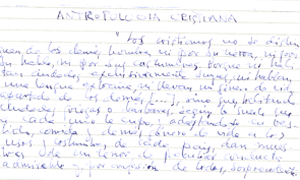 ANTROPOLOGIA CRISTIANA
"Los cristianos no se distin
guen de los demás hombres ni por su tierra, ni por
su habla, ni por sus costumbres. Porque ni habi
tan ciudades exclusivamente suyas, ni hablan
una lengua extraña, ni llevan un género de vida
apartado de los demás. [...], sino que, habitando
ciudades griegas o bárbaras, según la suerte que
a cada uno le cupo, y adaptándose a los
vida, comida y demás género de vida a los
usos y costumbres de cada país, dan mues
tras de un tenor de peculiar conducta
admirable y, por confesión de todos, sorprendente